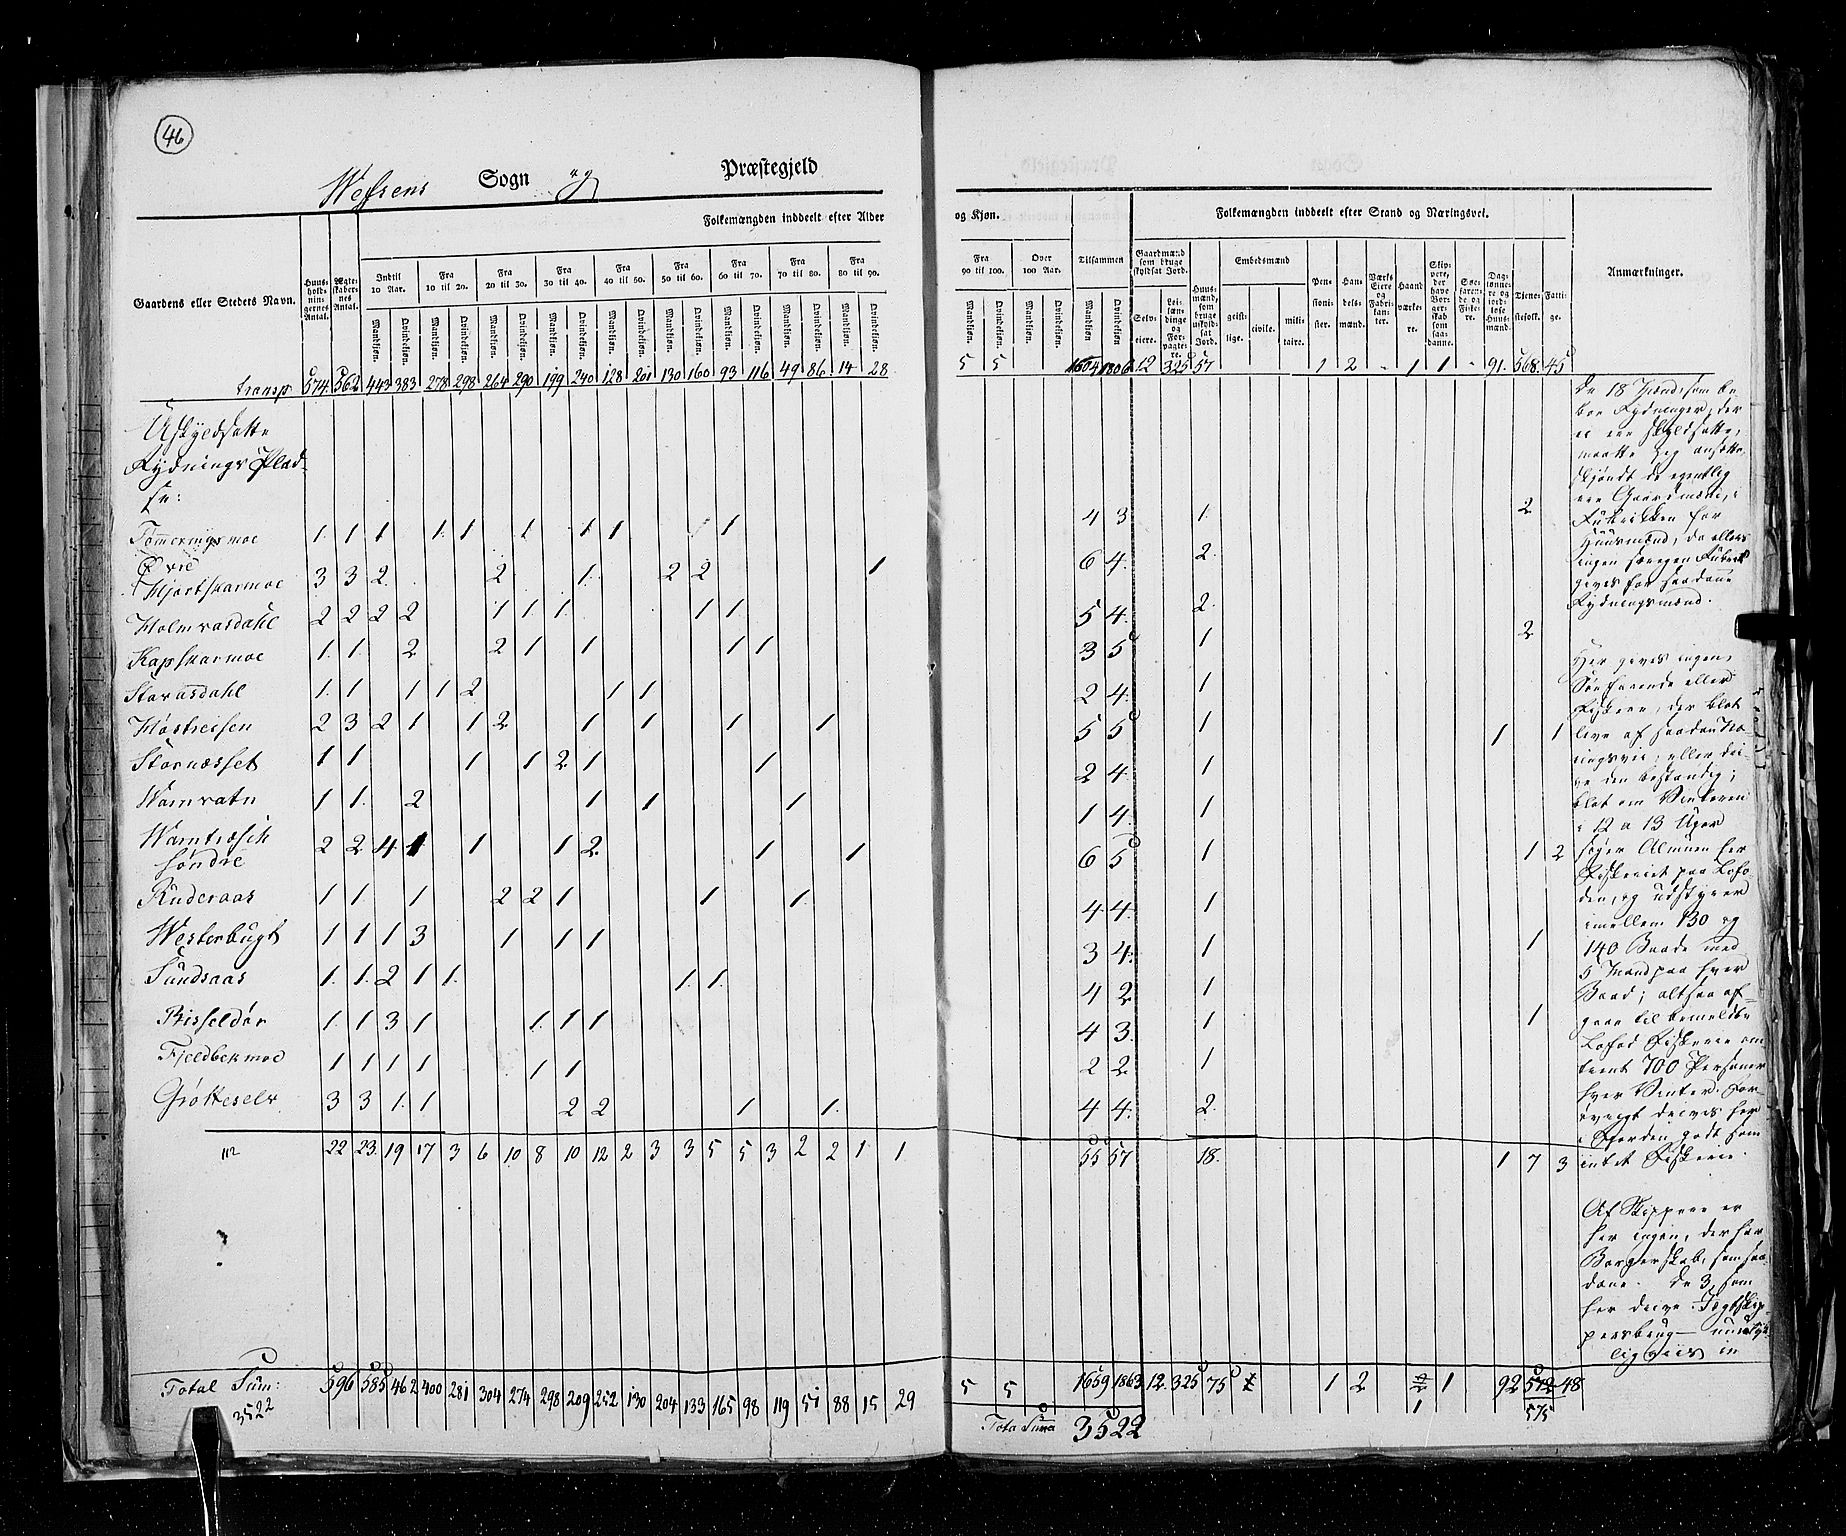 46
Wefsens Sogn og Præstegjeld
Folkemængden inddeelt efter Alder
og Kjøn.
Folkemængden inddeelt efter Stand og Næringsvei.
Gaardens eller Stedets Navn.
Huusholdningernes Antal.
Ægteskabernes Antal.
Indtil 10 Aar.
Fra 10 til 20.
Fra 20 til 30.
Fra 30 til 40.
Fra 40 til 50.
Fra 50 til 60.
Fra 60 til 70.
Fra 70 til 80.
Fra 80 til 90.
Fra 90 til 100.
Over 100 Aar.
Tilsammen
Gaardmænd som bruge skyldsat Jord.
Huusmænd, som bruge uskyldsat Jord.
Embedsmænd
Pensionister.
Handelsmænd.
Værks Eiere og Fabrikanter.
Haandværkere.
Skippere, der have Borgerskab som saadanne.
Søefarende og Fiskere.
Daglønnere og jordløse Huusmænd.
Tjenestefolk.
Fattige.
Anmærkninger.
Mandkjøn. Qvindekjøn. Mandkjøn. Qvindekjøn. Mandkjøn. Qvindekjøn. Mandkjøn. Qvindekjøn. Mandkjøn. Qvindekjøn. Mandkjøn. Qvindekjøn. Mandkjøn. Qvindekjøn. Mandkjøn. Qvindekjøn. Mandkjøn. Qvindekjøn.
Mandkjøn. Qvindekjøn. Mandkjøn. Qvindekjøn. Mandkjøn Qvindekjøn. Selveiere. Leilændinge og Forpagtere. geistlige. civile. militaire.
transp 574 562 443 383 278 298 264 290 199 240 128 201 130 160 93 116 49 86 14 28 5 5 1604 1806 12 325 57 1 2 - 1 1 - 91 568 45
Uskyldsatte
Rydnings Plad-
se:
Tømmeringsmoe 1 1 1 1 1 1 1 1 1 4 3 1 2
Øvre
Hjortskarmoe 3 3 2 2 1 2 2 1 6 4 2
Holmvasdahl 2 2 2 2 1 1 1 1 1 5 4 2
Kapskarmoe 1 1 2 2 1 1 1 1 3 5 1 2
Storvasdahl 1 1 1 1 2 1 1 2 4 1
2 3 2 1 1 2 1 1 1 1 5 5 1 1 1
Stornæsset 1 1 1 1 2 1 1 2 4 1
Wamvatn 1 1 2 1 1 1 1 4 1
Wamtræsk
søndre 2 2 4 1 1 1 2 1 1 6 5 1 1 2
Ruderaas 1 1 1 2 2 1 1 1 4 4 1
Westerbugt 1 1 1 3 1 1 1 3 4 1 1
Sundsaas 1 1 2 1 1 1 1 4 2 1
Bisseldør 1 1 3 1 1 1 1 4 3 1 1
Fjeldbekmoe 1 1 1 1 1 1 2 2 1
Grøtteselv 3 3 1 1 2 2 1 1 4 4 2
112 22 23 19 17 3 6 10 8 10 12 2 3 3 5 5 3 2 2 1 1 55 57 18 1 7 3
Total Sum: 596 585 462 400 281 304 274 298 209 252 130 204 133 165 98 119 51 88 15 29 5 5 1659 1863 12 325 75 1 2 1 92 572 48
3522
1 575
Total Suma 3522
De 18 Mænd, som be-
boe Rydninger, der
ei ere skyldsatte,
maatte jeg ansætte,
skjøndt de egentlig
ere Gaardmænd, i
Rubrikken for
Huusmænd, da ellers
ingen særegen Rubrik
gives for saadanne
Rydningsmænd.
Her gives ingen
Søefarende eller
Fiskere, der blot
leve af saadan Næ-
ringsvei, eller dri-
ve den bestandig;
blot om Vinteren
i 12 a 13 Uger
søger Almuen her
Fiskeriet paa Lofo-
den, og udstyrer
imellem 130 og
140 Baade med
5 Mand paa hver
Baad; altsaa af-
gaae til bemeldte
Lofod Fiskerie om-
trent 700 Personer
hver Vinter. For-
øvrigt drives her
i Fjorden godt som
intet Fiskerie.
Af Skippere er
her ingen, der har
Borgerskab, som saa-
dane. De 3, som
her drive Jægtskip-
persbrug